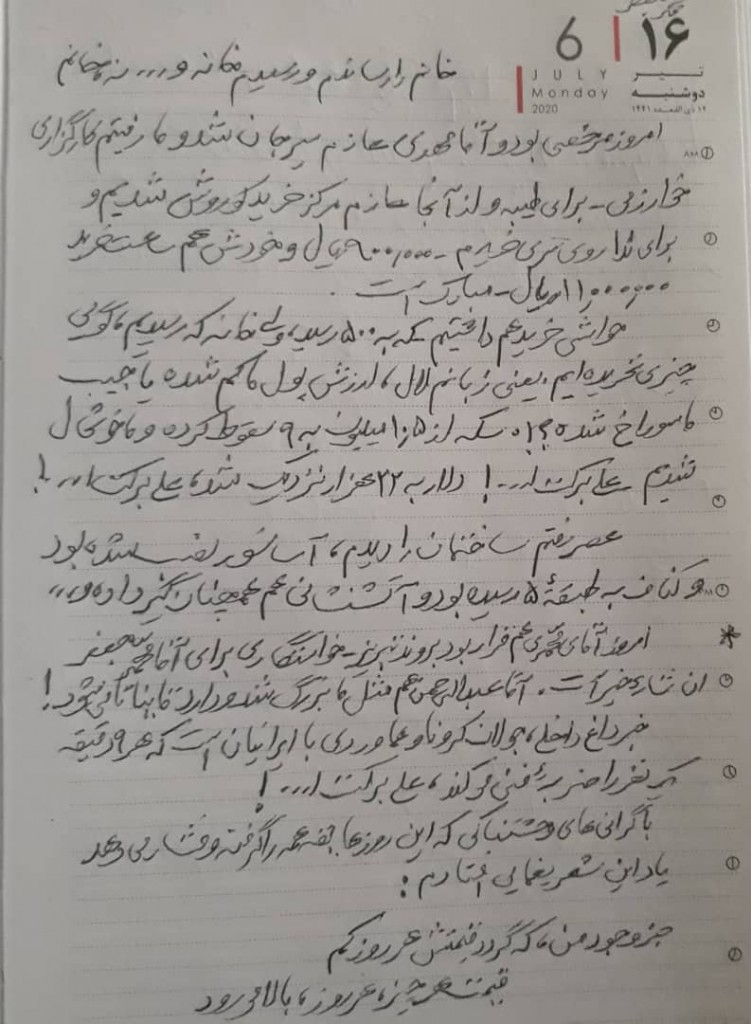 ۱۶
6
تیر
JULY
دوشنبه
Monday
۱۴ ذی القعده ۱۴۴۱
2020
خانم را رساندم و رسیدم خانه و... نه خانم
امروز مرخصی بود و آقا مهدی عازم سیرجان شد و ما رفتیم کارگزاری
خوارزمی - برای طیبه و از آنجا عازم مرکز خرید کوروش شدیم و
برای ندا روی تری خریدم - ۹۰۰۰،۰۰۰ ریال و خودش هم ساعت خرید
۱۱،۰۰۰،۰۰۰ ریال - مبارک است.
حواشی خرید هم داشتیم که به ۵۰۰ رسید، ولی خانه که رسیدیم، گویی
چیزی نخریده ایم. یعنی زبانم لال، ارزش پول ما کم شده یا جیب
ما سوراخ شده؟! سکه از ۱۰،۵ میلیون به ۹ سقوط کرده و ما خوشحال
شدیم - علی برکت ا...! دلار به ۲۲ هزار نزدیک شد، علی برکت ا...!
عصر رفتم ساختمان را دیدم، آسانسور نصب شده بود
و کناف به طبقهٔ ۵ رسیده بود و آتشنشانی هم همچنان گیر داده و...
* امروز آقای هم قرار بود بروند تبریز - خواستگاری برای آقا محمد جعفر
ان شاء خیر است. آقا عبدالرحمن هم مثل ما بزرگ شد و دارد می شود!
خبر داغ داخلی، جولان کرونا و هماوردی با ایرانیان است که هر ۹ دقیقه
یک نفر را ضربه فنی می کند، علی برکت ا...!
با گرانی های وحشتناکی که این روزها یقه همه را گرفته و فشار می دهد
یاد این شعر یغمایی افتادم:
جز وجود من، که گردد قیمتش هر روز کم
قیمت هر چیز، هر روز، بالا می رود